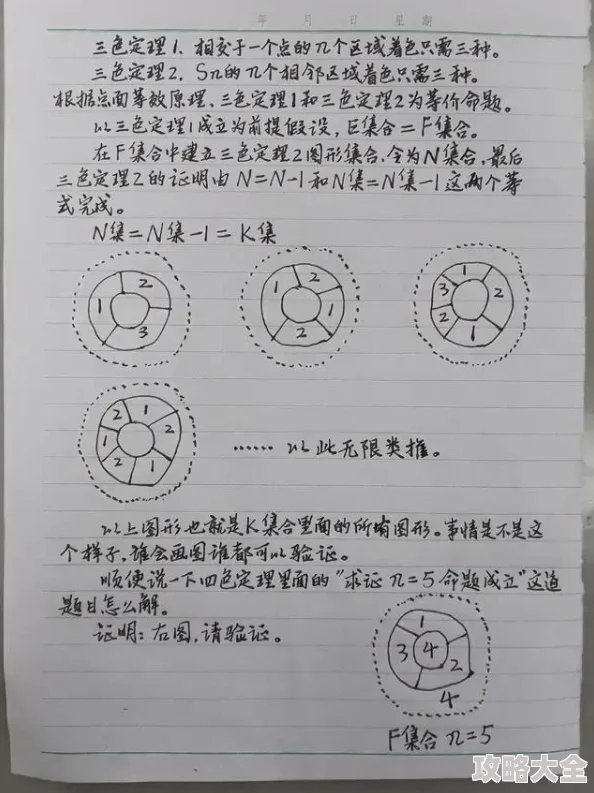 年 月 日 星期
三色定理1. 相交于一个点的n个区域着色只需三种。
三色定理2. Sn的n个相邻区域着色只需三种。
根据点面等效原理、三色定理1和三色定理2为等价命题。
以三色定理1成立为前提假设，E集合=F集合。
在F集合中建立三色定理2图形集合,全为N集合,最后
三色定理2的证明由N=N-1和N集=N集-1这两个等
式完成。
N集=N集-1=K集
1 2 3
1 2 1 2
3 1 2 1 2
2 1 2 1 2 1
…… 以此无限类推。
以上图形也就是K集合里面的所有图形。事情是不是这
个样子,谁会画图谁都可以验证。
顺便说一下四色定理里面的"求证n=5命题成立"这道
题目怎么解。
证明：右图,请验证。
1 3 4 2
4
F集合 n=5
攻略大全